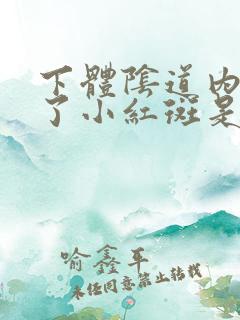 下體陰道內
了小紅斑是
喻鑫平
未经同意禁止转载